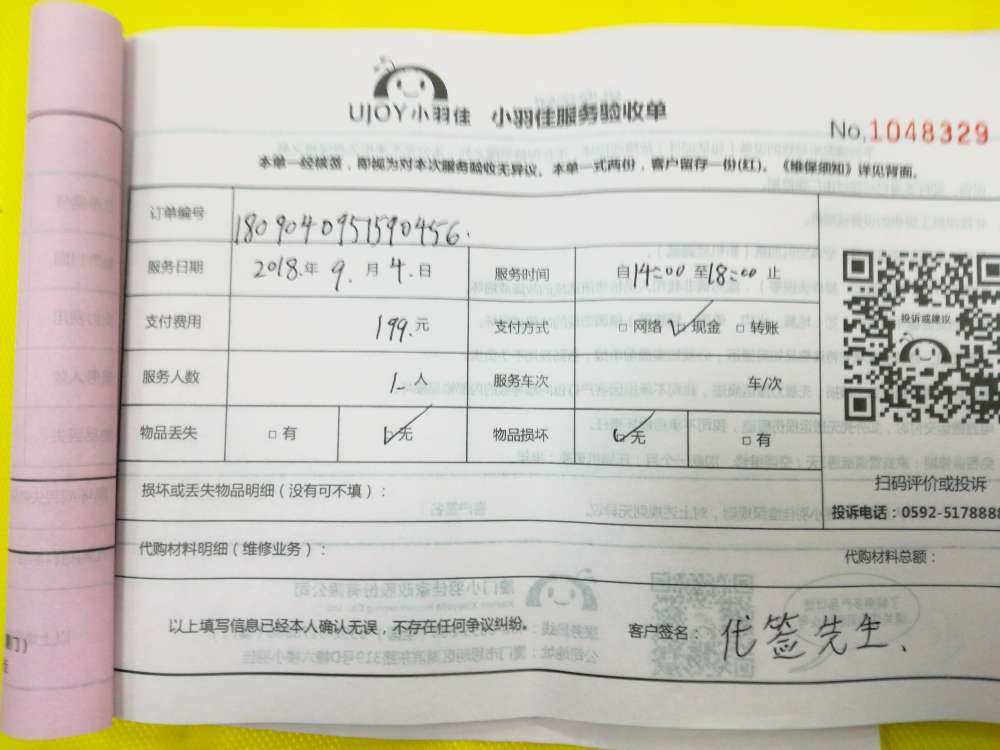 UJOY小羽佳 小羽佳服务验收单
No.1048329
本单一经核签，即视为对本次服务验收无异议。本单一式两份，客户留存一份(红)。《维保须知》详见背面。
订单编号 1809040951590456.
服务日期 2018.年 9. 月 4. 日 服务时间 自14:00 至18:00 止
支付费用 199.元 支付方式 □ 网络 ☑ 现金 □ 转账
服务人数 1. 人 服务车次 车/次
物品丢失 □ 有 ☑ 无 物品损坏 ☑ 无 □ 有
投诉或建议
扫码评价或投诉
投诉电话：0592-5178888
损坏或丢失物品明细（没有可不填）：
代购材料明细（维修业务）： 代购材料总额：
以上填写信息已经本人确认无误，不存在任何争议纠纷。 客户签名： 代签先生.